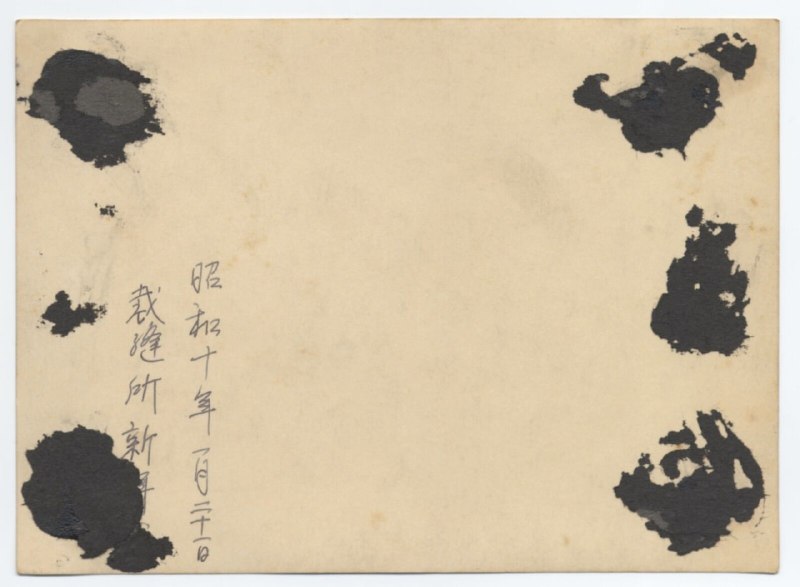 昭和十年一月二十一日
裁縫所新年